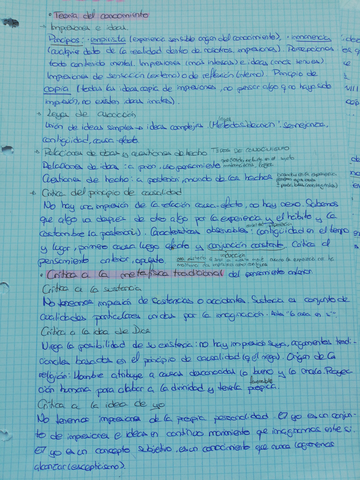 • Teoría del conocimiento
→ Impresiones e ideas
Principios: · empirista (experiencia sensible origen del conocimiento), · inmanencia
(cualquier dato de la realidad dentro de nosotros, impresiones). Percepciones
todo contenido mental. Impresiones (más intensas) e ideas (menos intensas).
Impresiones de sensación (externa) o de reflexión (interna). Principio de
copia (todas las ideas copia de impresiones, no pensar algo q no haya sido
impresión), no existen ideas innatas).
→ Leyes de asociación
Unión de ideas simples → ideas complejas semejanza,
contigüidad, causa-efecto
→ Relaciones de ideas y cuestiones de hecho
Relaciones de ideas: a priori
Cuestiones de hecho: a posteriori, mundo de los hechos
→ Crítica del principio de causalidad
No hay una impresión de la relación causa-efecto, no hay nexo. Sabemos
que algo va después de otro algo por la experiencia y el hábito y la
costumbre (a posteriori). Características observables: contigüidad en el tiempo
y lugar, primero causa luego efecto y conjunción constante. Critica al
pensamiento anterior,
• Crítica a la metafísica tradicional del pensamiento anterior
Crítica a la sustancia
No tenemos impresión de sustancias o accidentes. Sustancia es conjunto de
cualidades particulares unidas por la imaginación.
Crítica a la idea de Dios
Niega la posibilidad de su existencia: no hay impresión suya, argumentos tradi-
cionales basados en el principio de causalidad (q el negó). Origen de la
religión: Hombre atribuye a causas desconocidas lo bueno y lo malo. Proyec-
ción humana para alabar a la divinidad y tenerla propicia
Crítica a la idea de yo
No tenemos impresiones de la propia personalidad. El yo es un conjun-
to de impresiones e ideas en continuo movimiento que imaginamos este sí.
El yo es un concepto subjetivo, es un conocimiento que nunca lograremos
alcanzar (escepticismo).